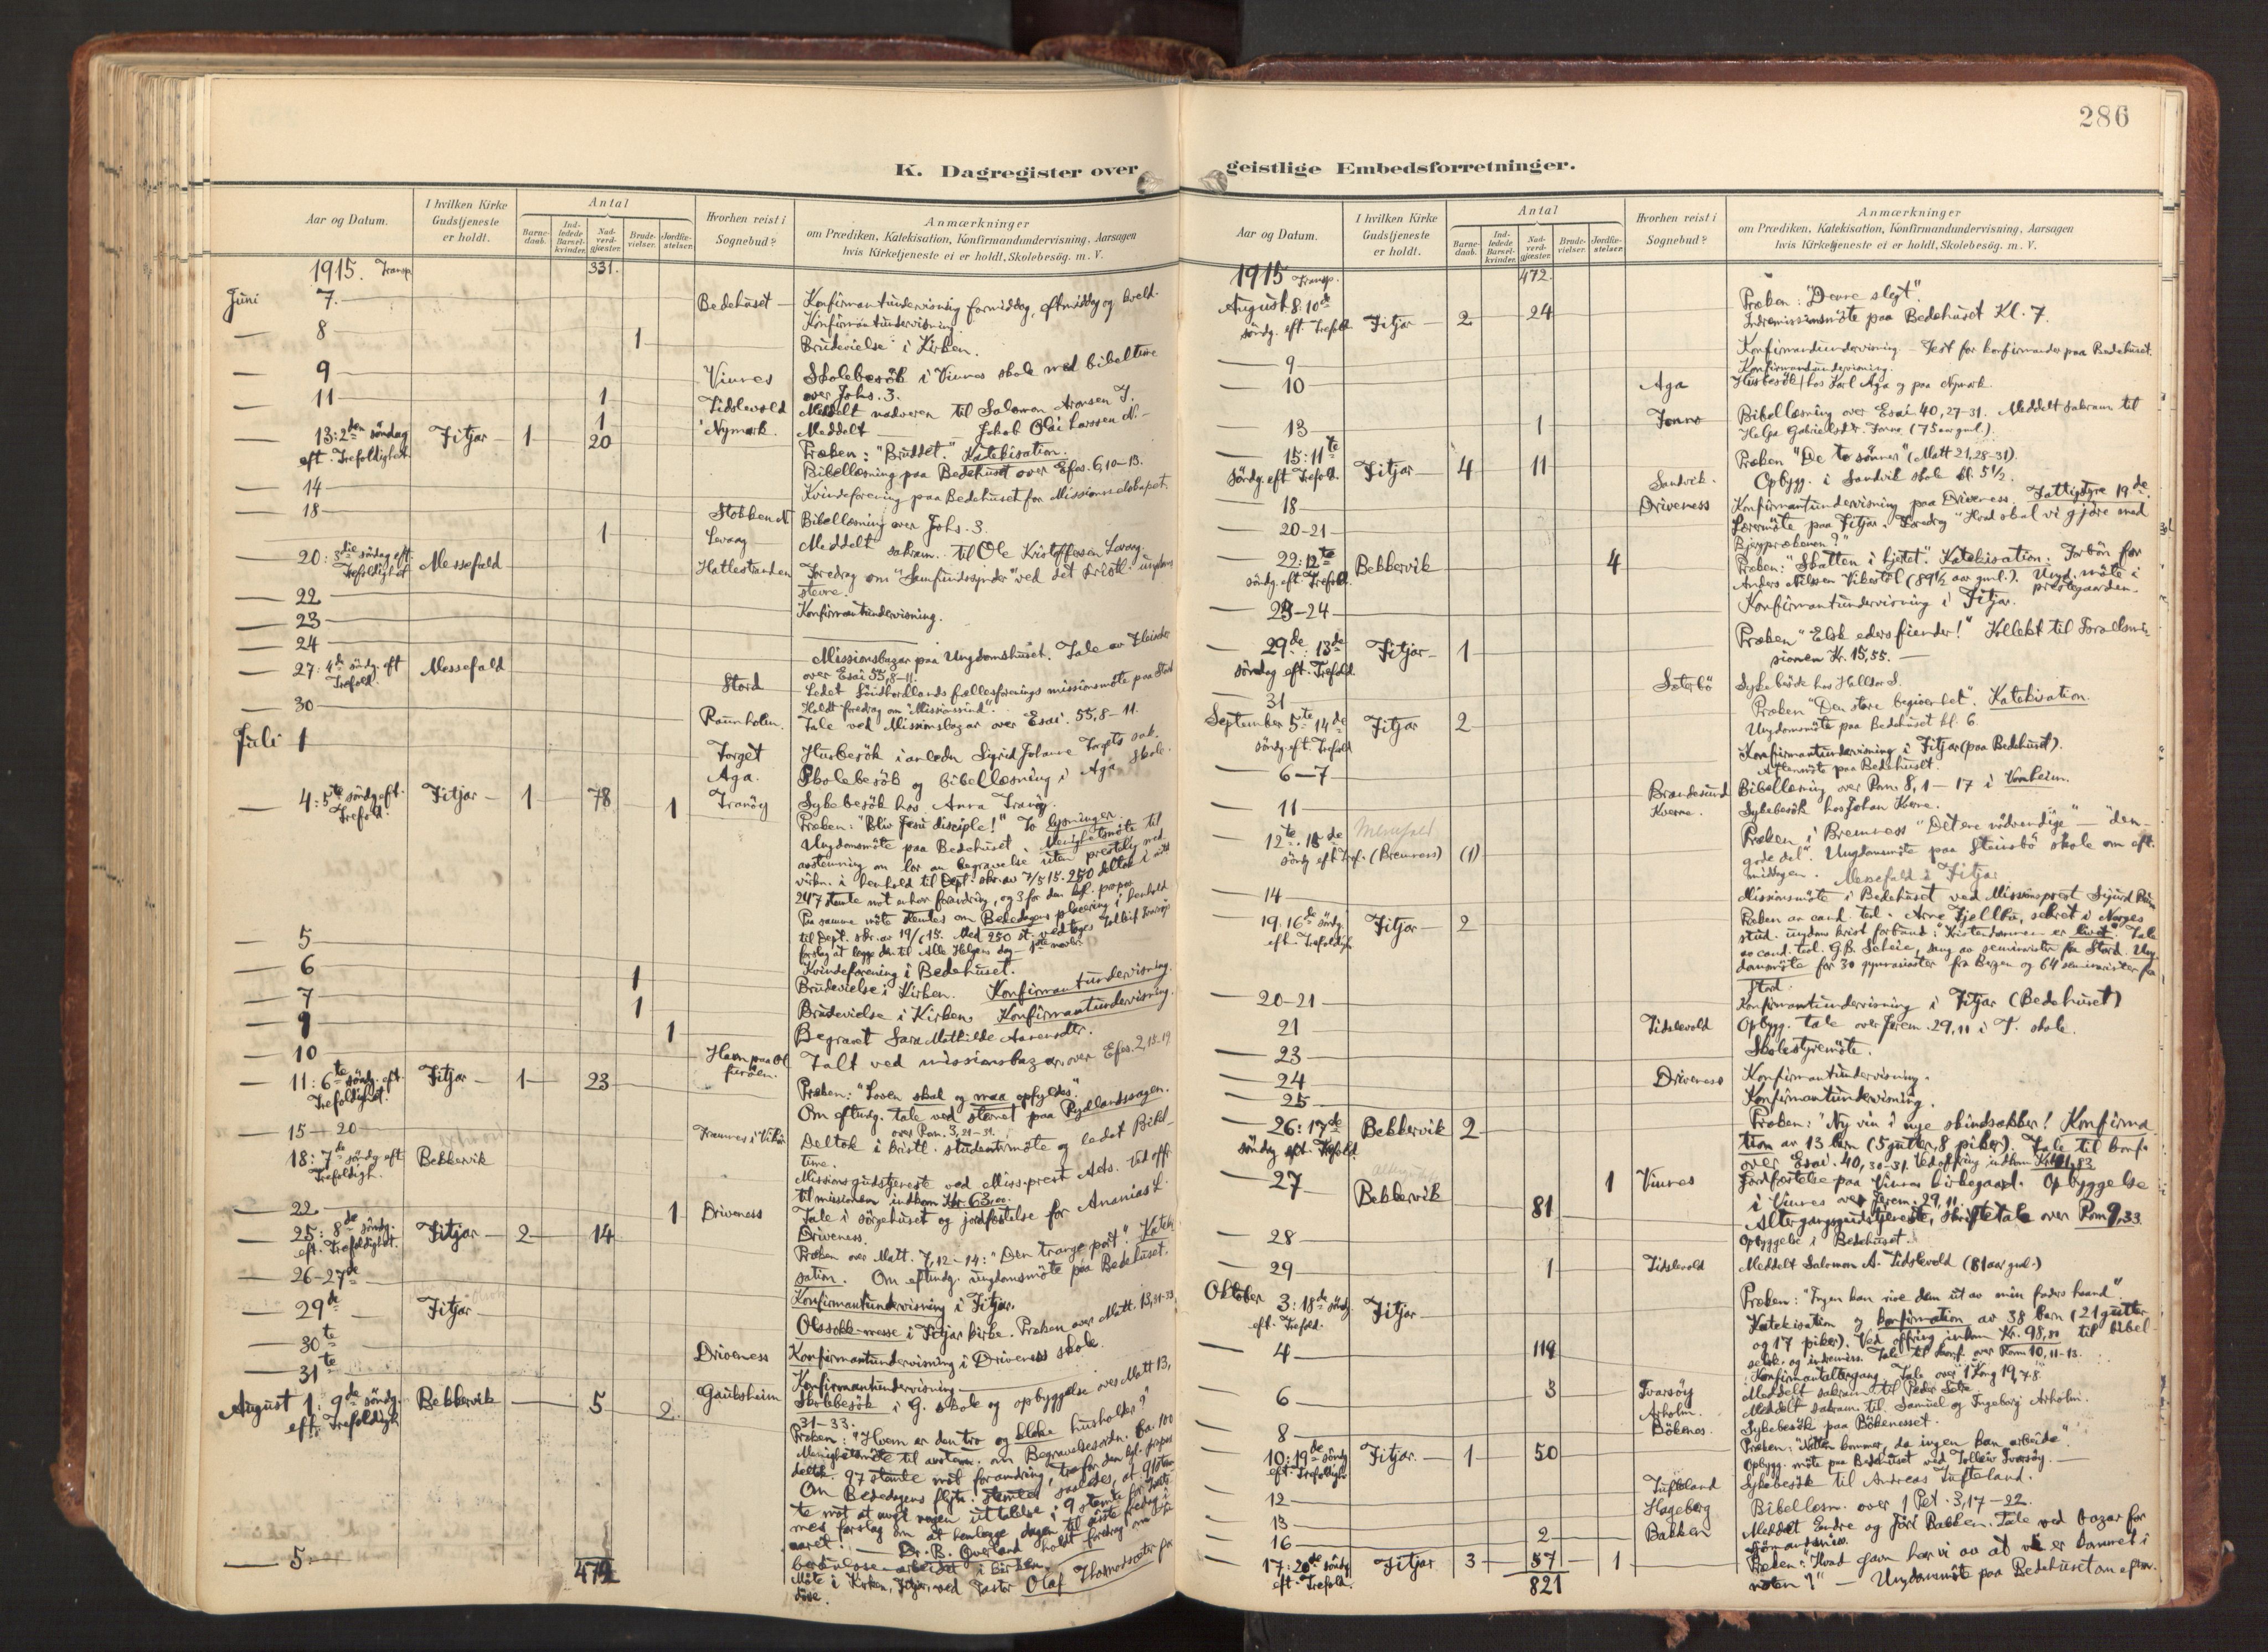 286
K. Dagregister over
geistlige Embedsforretninger.
Aar og Datum.
I hvilken Kirke Gudstjeneste er holdt.
Antal
Barne-daab.
Ind-ledede Barsel-kvinder.
Nad-verd-gjæster.
Brude-vielser.
Jordfæ-stelser.
Hvorhen reist i Sognebud?
Anmærkninger
om Prædiken, Katekisation, Konfirmandundervisning, Aarsagen
hvis Kirketjeneste ei er holdt, Skolebesög. m. V.
1915. Transp. 331.
Juni 7. Bedehuset Konfirmantundervisning formiddag, eftmiddag og kveld.
8 Konfirmantundervisning.
1 Brudevielse i Kirken.
9 Vinnes Skolebesök i Vinnes skole med bibeltime
over Johs. 3.
11 1 Tidslevold Meddelt nadveren til Salomon Aronsen T.
1 Nymark. Meddelt Jakob Olai Larssen N.
13: 2den söndag eft. Trefoldighet Fitjar 1 20 Præken: "Bruddet". Katekisation.
Bibellæsning paa Bedehuset over Efes. 6, 10-13.
14 Kvindeforening paa Bedehuset for Missionsselskapet.
18 Stokken N. Bibellæsning over Johs. 3.
1 Levaag Meddelt sakram. til Ole Kristoffersen Levaag.
20: 3die söndag eft. Trefoldighet Messefald Hatlestranden Foredrag om "Samfundssynder" ved det kristl. ungdoms
stevne.
22 Konfirmantundervisning.
23
24 Missionsbazar paa Ungdomshuset. Tale av
over Esai 55, 8-11.
27: 4de söndg. eft Trefold. Messefald Stord Ledet Söndhordlands fællesforenings missionsmöte paa Stord
Holdt foredrag om "Missionssind".
30 Raunholm. Tale ved Missionsbazar over Esai. 55, 8-11.
Juli 1 Torget Husbesök i anledn. Sigrid Johanne Torgets
Aga. Skolebesök og bibellæsning i Aga skole.
4: 5te söndg eft. Trefold. Fitjar 1 78 1 Tranöy Sykebesök hos Anna Tranöy.
Præken: "Bliv Jesu disciple!" To lysninger.
Ungdomsmöte paa Bedehuset. Menighetsmöte til
avstemning om lov om begravelse uten prestelig med
virkn. i henhold til Dept. skr. av 7/5 15. 250 deltok i
247 stemte mot enhver forandring, og 3 for den kgl. propos.
Paa samme möte stemtes om Bededagens placering i henhold
til Dept. skr. av 19/6 15. Med 250 st. vedtoges Tolleif Tvarsöys
forslag at lægge den til Alle Helgens dag 1ste novbr.
5 Kvindeforening i Bedehuset.
6 1 Brudevielse i Kirken. Konfirmantundervisning.
7 1 Brudevielse i Kirken. Konfirmantundervisning.
9 1 Begravet Sara Mathilde Aarensdtr.
10 Talt ved missionsbazar over Efes. 2, 13-19
11: 6te söndg. eft. Trefoldighet. Fitjar 1 23 Præken: "Loven skal og maa opfyldes".
Om eftmdg. tale ved stevnet paa Rydlandsvaagen.
over Rom. 3, 21-31.
15-20 Deltok i kristl. studentermöte og ledet Bibel-
time.
18: 7de söndg eft Trefoldigh. Bekkervik Missionsgudstjeneste ved Miss.prest Aes. Ved offr.
til missionen indkom Kr 63,00.
22 1 Driveness Tale i sörgehuset og jordfæstelse for Ananias L.
Driveness.
25: 8de söndg. eft. Trefoldighet. Fitjar 2 14 Præken over Matt. 7, 12-14: "Den trange port". Kateki-
sation. Om eftmdg. ungdomsmöte paa Bedehuset.
26-27de Konfirmantundervisning i Fitjar.
29de Fitjar Olsokk-messe i Fitjar kirke. Præken over Matt. 13, 31-33
30te Driveness Konfirmantundervisning i Driveness skole.
31te Konfirmantundervisning
Gauksheim Skolebesök i G. skole og opbyggelse over Matt 13,
31-33.
August 1: 9de söndg. eft. Trefoldigh. Bekkervik 5 2 Præken: "Hvem er den tro og kloke husholder?"
Menighetsmöte til avstemn. om Begravelsesordn. Ca. 100
deltok. 97 stemte mot forandring, tre for den kgl. propos.
Om Bededagens flytn. stemtes saaledes, at 91 stem
te mot at avgi nogen uttalelse i 9 stemte for
mes forslag om at henlægge dagen til siste fredag i
aaret. Dr. B. Overland holdt foredrag om tu
berkulosearbeidet i kirken.
5 Möte i Kirken, Fitjar, ved Pastor Olaf
472
1915 Transp. 472.
August 8: 10de söndg. eft. Trefold. Fitjar 2 24 Præken: "Denne slegt".
Indremissionsmöte paa Bedehuset Kl. 7.
9 Konfirmandundervisning - Fest for konfirmander paa Bedehuset.
10 Konfirmandundervisning.
Aga Husbesök hos Karl Aga og paa Nymark.
13 1 Bibellæsning over Esai 40, 27-31. Meddelt sakram. til
Helga Gabrielsdtr. (75 aar gml.)
15: 11te söndg. eft Trefold. Fitjar 4 11 Præken "De to sönner" (Matt 21, 28-31).
Sandvik. Opbygg. i Sandvik skole kl. 5½.
18 Driveness Konfirmantundervisning paa Driveness. Fattigstyre 19de.
20-21 Lærermöte paa Fitjar. Foredrag "Hvad skal vi gjöre med
Bjergprækenen?"
22: 12te söndg. eft. Trefold. Bekkervik 4 Præken: "Skatten i hjertet". Katekisation. Forbön for
Anders Nilssen Vikestöl (89½ aar gml.). Ungd. möte i
prestegaarden.
23-24 Konfirmantundervisning i Fitjar.
29de: 13de söndag eft. Trefold. Fitjar 1 Præken "Elsk eders fiender!" Kollekt til Israelsmis-
sionen Kr. 15,55.
31 Sæterbö Sykebesök hos Halldor S.
September 5te: 14de söndg. eft. Trefold. Fitjar 2 Præken "Den store begivenhet". Katekisation.
Ungdomsmöte paa Bedehuset kl. 6.
6-7 Konfirmantundervisning i Fitjar (paa Bedehuset).
Aftenmöte paa Bedehuset.
11 Brandesund Bibellæsning over Rom. 8, 1-17 i Vonheim.
Kverne. Sykebesök hos Johan Kverne.
12te: 15de söndg eft Tref. Messefald (Bremness) (1) Præken i Bremness "Det ene nödvendige" - "den
gode del". Ungdomsmöte paa Steinsbö skole om eft.
middagen. Messefald i Fitjar
14 Missionsmöte i Bedehuset ved Missionsprest Sigurd
19. 16de söndg. eft. Trefoldigh. Fitjar 2 Præken av cand. teol. Arne Fjellbu, sekret. i Norges
stud. ungdoms krist forbund: "Kristendommen er livet". Tale
av cand. teol. G.B. Scheie, sang av seminarister fra Stord. Ung-
domsmöte for 30 gymnasiaster fra Bergen og 64 seminarister fra
Stord.
20-21 Konfirmantundervisning i Fitjar (Bedehuset)
21 Tidslevold Opbygg. tale over Jerem. 29, 11 i T. skole.
23 Skolestyremöte.
24 Driveness Konfirmantundervisning.
25 Konfirmantundervisning.
26: 17de söndg eft. Trefold. Bekkervik 2 Præken: "Ny vin i nye skindsækker! Konfirma-
tion av 13 barn (5 gutter, 8 piker). Tale til konf.
over Esai. 40, 30-31. Ved offring indkom Kr. 41,83
27 1 Vinnes Jordfæstelse paa Vinnes kirkegaard. Opbyggelse
i Vinnes over Jerem. 29, 11.
Bekkervik 81 Altergangsgudstjeneste, Skriftetale over Rom 9, 33.
28 Opbyggelse i Bedehuset.
29 1 Tidslevold Meddelt Salomon A. Tidslevold (81 aar gml.)
Oktober 3: 18de söndg. eft. Trefold. Fitjar Præken: "Ingen kan rive dem ut av min faders haand".
Katekisation og konfirmation av 38 barn (21 gutter
og 17 piker). Ved offring indkom Kr. 98,80 til bibel-
selsk. og indremiss. Tale til konf. over Rom 10, 11-13.
4 119 Konfirmantaltergang. Tale over 1 Kong 19, 7-8.
6 3 Tvarsöy Meddelt sakram. til Peder
Arholm. Meddelt sakram. til Samuel og Ingeborg Arholm.
8 Bökenes. Sykebesök paa Bökenesset.
10: 19de söndg eft. Trefoldigh. Fitjar. 1 50 Præken: "Natten kommer, da ingen kan arbeide".
Opbygg. möte paa Bedehuset ved Tolleiv Tvarsöy.
12 Tufteland Sykebesök til Andreas Tufteland.
13 Hageberg Bibellæsn. over 1 Pet. 3, 17-22.
16 2 Bakken Meddelt Endre og Jöri Bakken. Tale ved bazar for
sjömandsmiss.
17: 20de söndg eft. Trefold. Fitjar 3 57 1 Præken: "Hvad gavn har vi av at vi er kommet i
noten?" Ungdomsmöte paa Bedehuset om eftm.
821